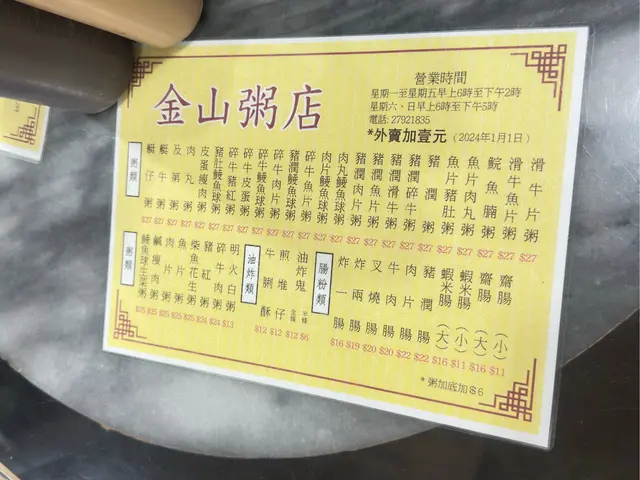 金山粥店
營業時間
星期一至星期五早上6時至下午2時
星期六、日早上6時至下午5時
電話: 27921835
*外賣加壹元（2024年1月1日）
粥類
艇仔粥 $27
艇牛粥 $27
及第粥 $27
肉丸粥 $27
皮蛋瘦肉粥 $27
豬肚鯪魚球粥 $27
碎牛豬紅粥 $27
碎牛皮蛋粥 $27
碎牛鯪魚球粥 $27
豬潤鯪魚球粥 $27
碎牛魚片粥 $27
肉片鯪魚球粥 $27
肉丸鯪魚球粥 $27
豬潤魚片粥 $27
豬潤肉滑粥 $27
豬潤碎牛粥 $27
魚片豬肚粥 $27
魚片肉丸粥 $27
鯇魚腩粥 $27
滑牛魚片粥 $27
滑牛片粥 $27
粥類
鯪魚球生菜粥
鹹瘦肉粥 $25
肉片粥 $25
魚片粥 $25
柴魚花生粥 $25
豬紅粥 $24
碎牛肉粥 $24
明火白粥 $13
油炸類
牛脷酥 $12
煎堆仔 $12
油炸鬼 $12 $6
腸粉類
炸一腸 $16
炸兩腸 $19
叉燒腸 $20
牛肉腸 $20
肉片腸 $22
豬潤腸 $22
蝦米腸（大） $16
蝦米腸（小） $11
齋腸（大） $16
齋腸（小） $11
*粥加底加$6